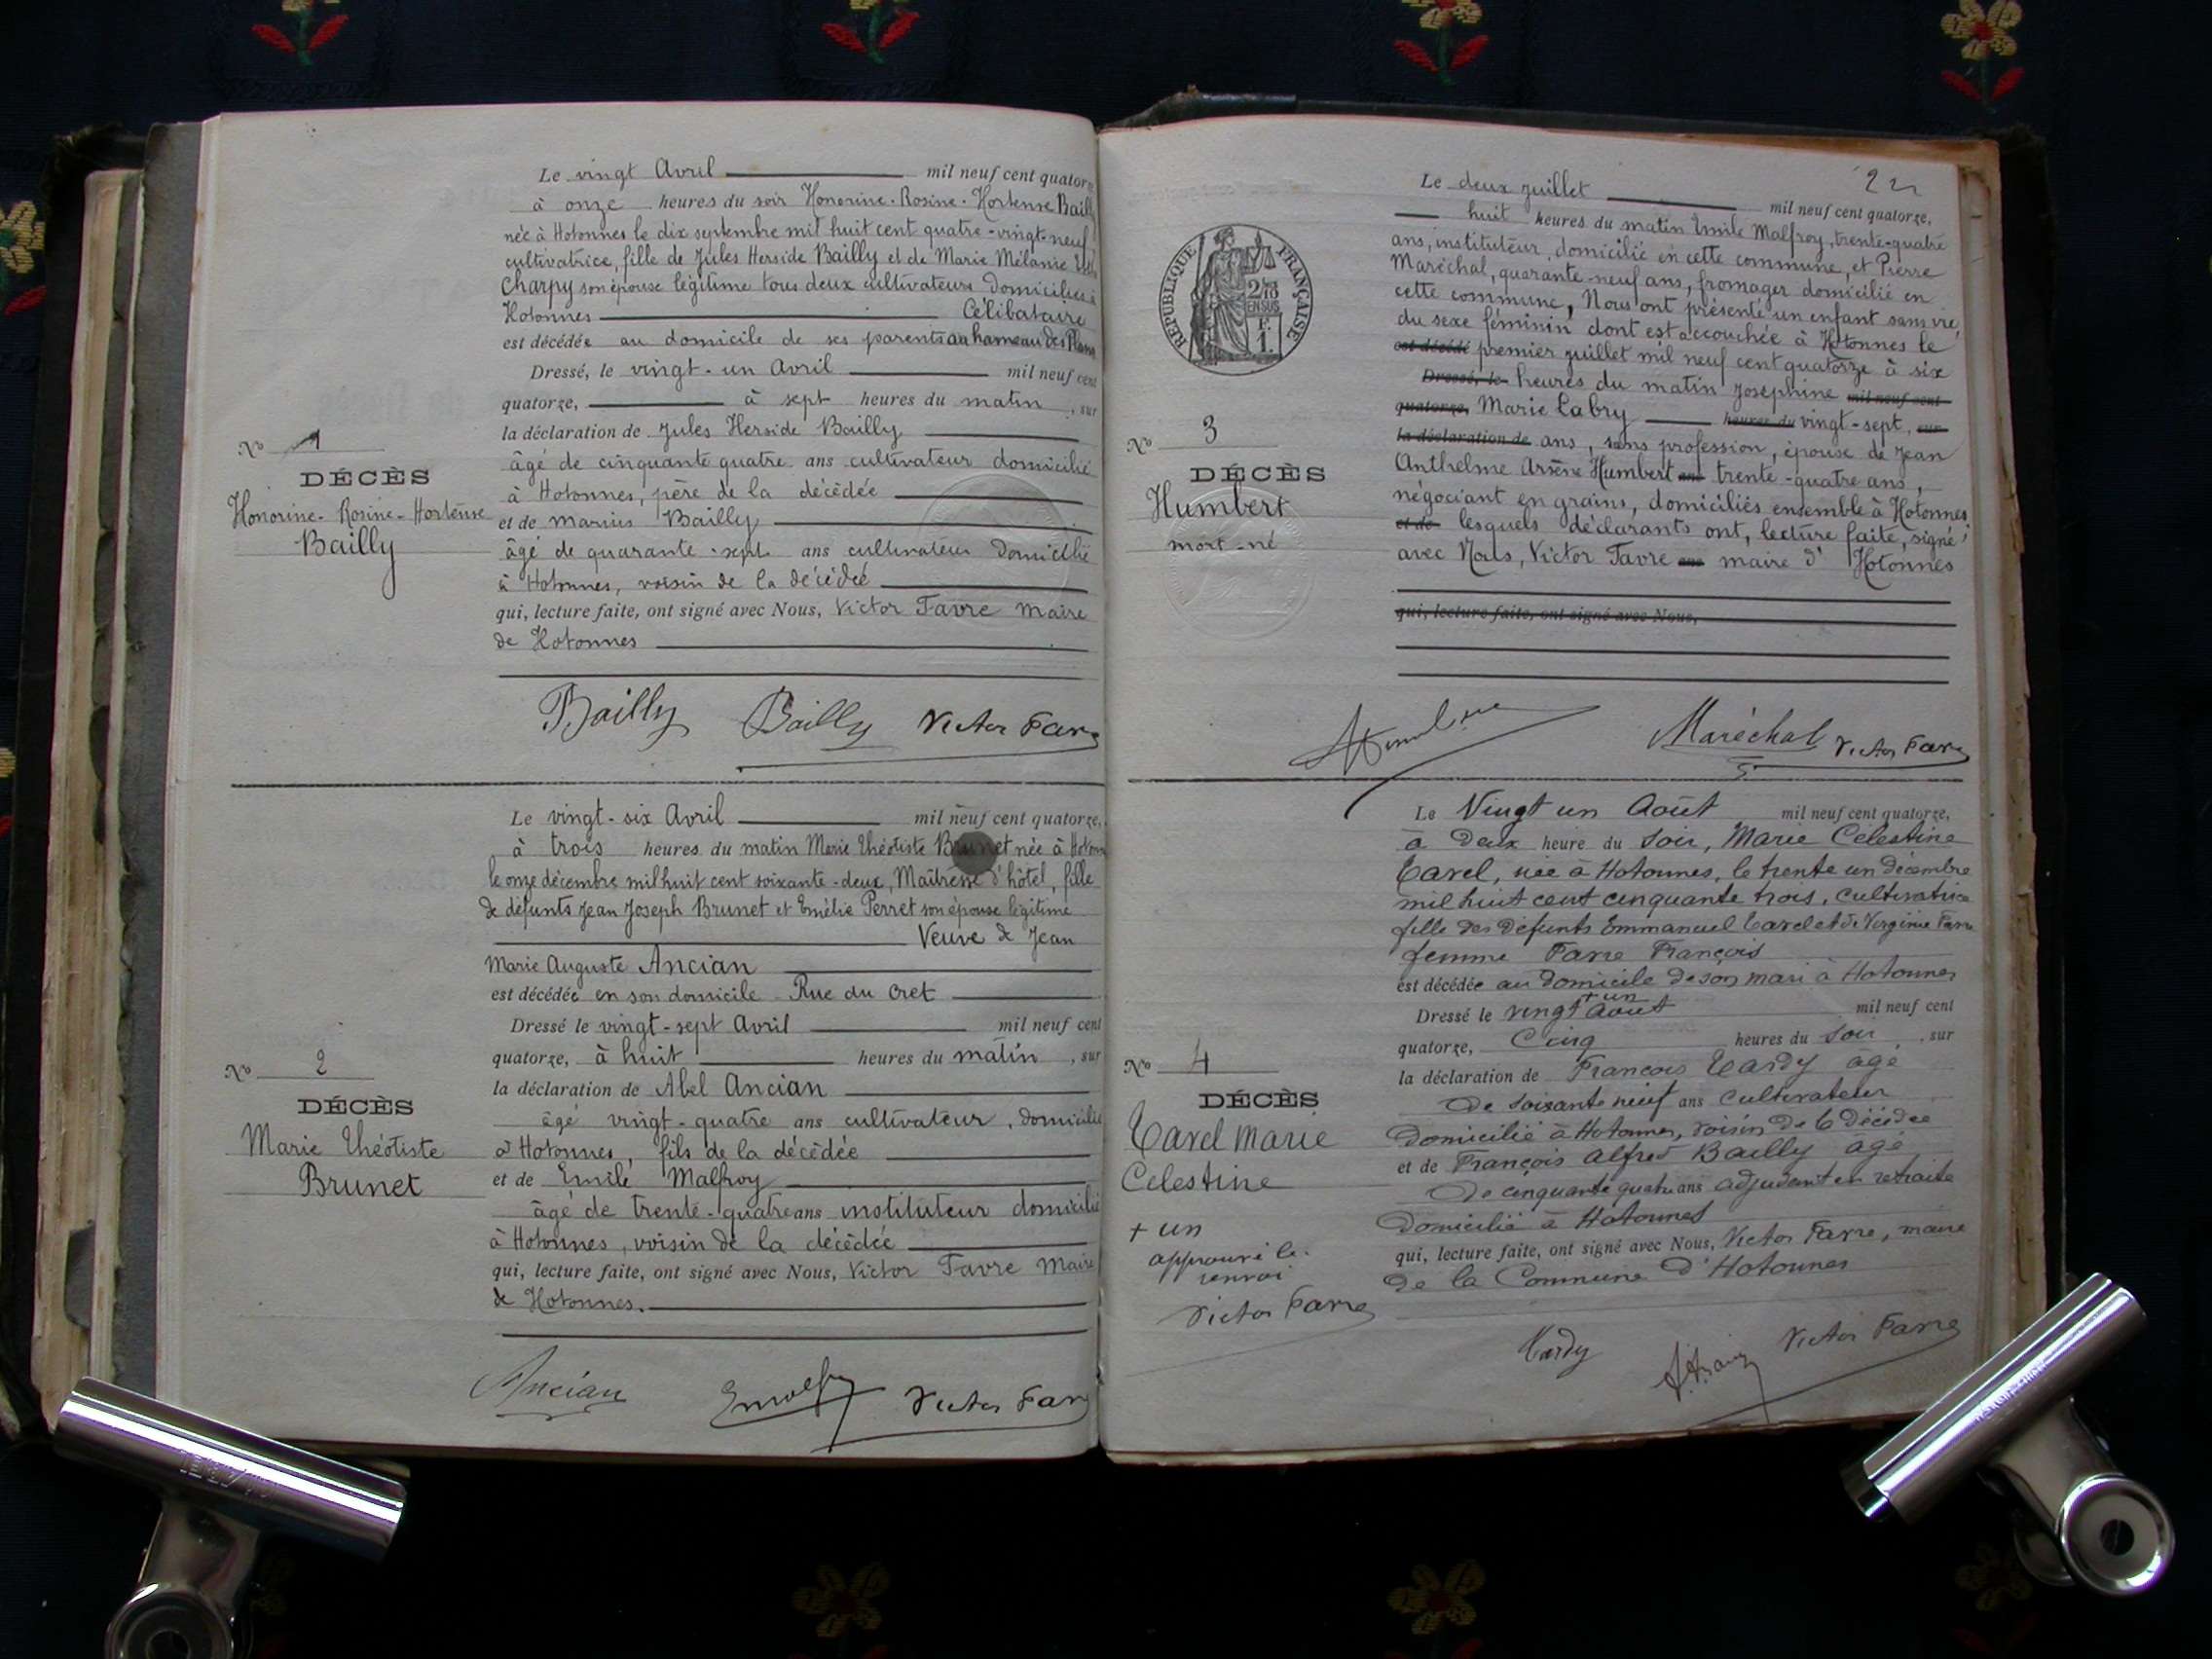 Le vingt Avril mil neuf cent quatorze
à onze heures du soir Honorine-Rosine-Hortense Bailly
née à Hotonnes le dix septembre mil huit cent quatre-vingt-neuf
cultivatrice, fille de Jules Herside Bailly et de Marie Mélanie
Charpy son épouse légitime tous deux cultivateurs domiciliés à
Hotonnes Célibataire
est décédée au domicile de ses parents au hameau des Plans
Dressé, le vingt-un Avril mil neuf cent
quatorze, à sept heures du matin, sur
la déclaration de Jules Herside Bailly
âgé de cinquante quatre ans cultivateur domicilié
à Hotonnes, père de la décédée
et de Marius Bailly
âgé de quarante-sept ans cultivateur domicilié
à Hotonnes, voisin de la décédée
qui, lecture faite, ont signé avec Nous, Victor Favre maire
de Hotonnes
No 1
DÉCÈS
Honorine-Rosine-Hortense
Bailly
Bailly Bailly Victor Favre
Le vingt-six Avril mil neuf cent quatorze,
à trois heures du matin Marie Théotiste Brunet née à Hotonnes
le onze décembre mil huit cent soixante-deux, Maîtresse d'hôtel, fille
de défunts Jean Joseph Brunet et Emélie Perret son épouse légitime
Veuve de Jean
Marie Auguste Ancian
est décédée en son domicile Rue du Cret
Dressé le vingt-sept Avril mil neuf cent
quatorze, à huit heures du matin, sur
la déclaration de Abel Ancian
âgé vingt-quatre ans cultivateur, domicilié
à Hotonnes, fils de la décédée
et de Emile Malfroy
âgé de trente-quatre ans instituteur domicilié
à Hotonnes, voisin de la décédée
qui, lecture faite, ont signé avec Nous, Victor Favre Maire
de Hotonnes.
No 2
DÉCÈS
Marie Théotiste
Brunet
Ancian Emalfroy Victor Favre
22
Le deux juillet mil neuf cent quatorze,
huit heures du matin Emile Malfroy, trente-quatre
ans, instituteur, domicilié en cette commune, et Pierre
Maréchal, quarante-neuf ans, fromager domicilié en
cette commune, Nous ont présenté un enfant sans vie,
du sexe féminin dont est accouchée à Hotonnes le
est décédé premier juillet mil neuf cent quatorze à six
Dressé, le heures du matin Joséphine mil neuf cent
quatorze, Marie Labry heures du vingt-sept, sur
la déclaration de ans, sans profession, épouse de Jean
Anthelme Arsène Humbert ans trente-quatre ans,
négociant en grains, domiciliés ensemble à Hotonnes
et de lesquels déclarants ont, lecture faite, signé
avec Nous, Victor Favre ans maire d'Hotonnes
qui, lecture faite, ont signé avec Nous,
RÉPUBLIQUE FRANÇAISE
2/10
EN SUS
F.
1.
No 3
DÉCÈS
Humbert
mort-né
Maréchal Victor Favre
Le Vingt un Août mil neuf cent quatorze,
à Deux heure du Soir, Marie Célestine
Carel, née à Hotonnes, le trente un décembre
mil huit cent cinquante trois, cultivatrice
fille des Défunts Emmanuel Carel et de Virginie Favre
femme Favre François
est décédée au domicile de son mari à Hotonnes
Dressé le vingt + un Août mil neuf cent
quatorze, Cinq heures du Soir, sur
la déclaration de François Tardy âgé
De Soixante neuf ans Cultivateur
Domicilié à Hotonnes, voisin De la décédée
et de François Alfred Bailly âgé
De cinquante quatre ans adjudant en retraite
Domicilié à Hotonnes
qui, lecture faite, ont signé avec Nous, Victor Favre, maire
De la Commune D'Hotonnes
No 4
DÉCÈS
Carel Marie
Celestine
+ un
approuvé le
renvoi
Victor Favre
Tardy Victor Favre